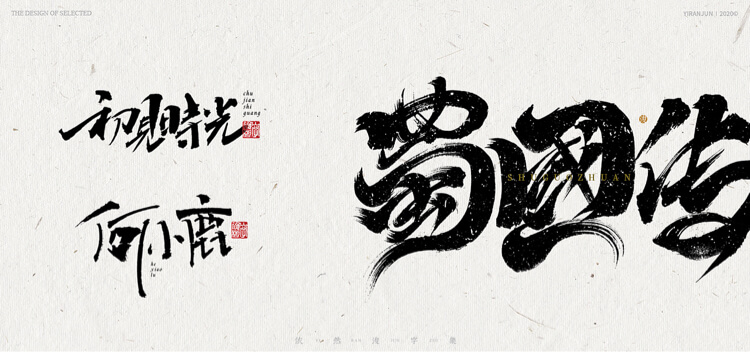 THE DESIGN OF SELECTED
YIRANJUN | 2020©
初見時光
chu
jian
shi
guang
何小鹿
he
xiao
lu
蜀國传
SHUGUOZHUAN